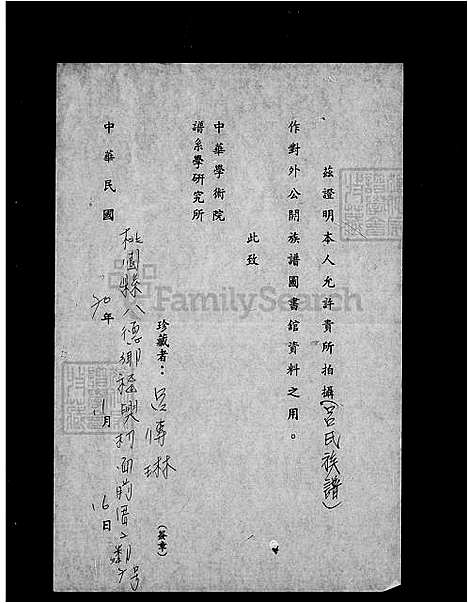 茲證明本人允許貴所拍攝(呂氏族譜)
作對外公開族譜圖書館資料之用。
此致
中華學術院
譜系學研究所
珍藏者：呂傳琳
(簽章)
桃園縣八德鄉
中華民國70年11月16日
FamilySearch